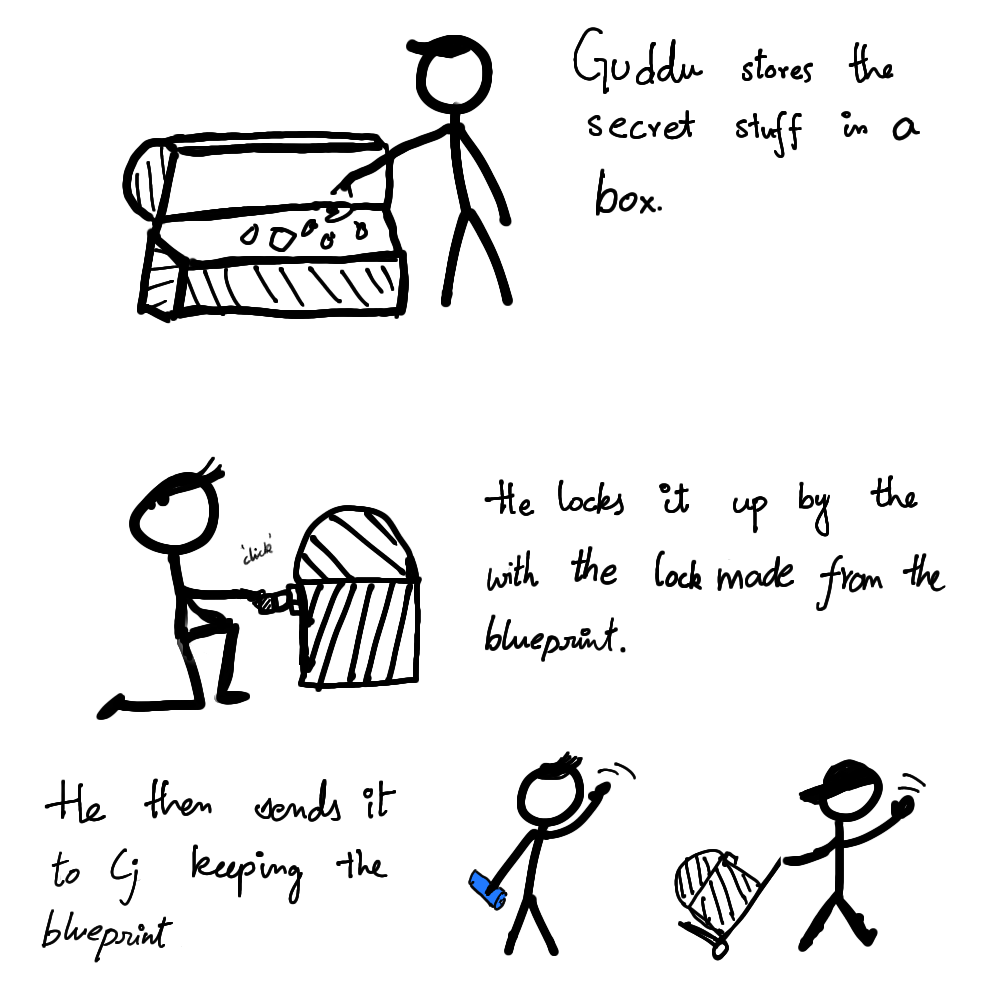 Guddu stores the
secret stuff in a
box.
'click'
He locks it up by the
with the lock made from the
blueprint.
He then sends it
to Cj keeping the
blueprint